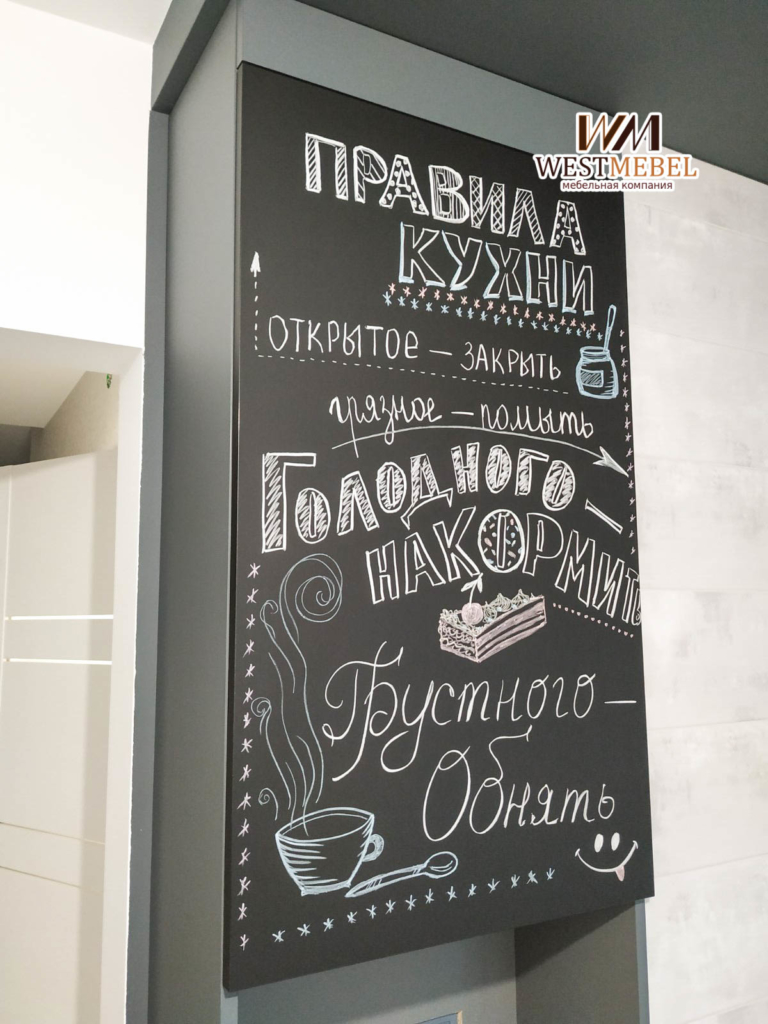 WM
WESTMEBEL
мебельная компания
ПРАВИЛА
КУХНИ
ОТКРЫТОЕ – ЗАКРЫТЬ
грязное – помыть
ГОЛОДНОГО –
НАКОРМИТЬ
Грустного –
Обнять